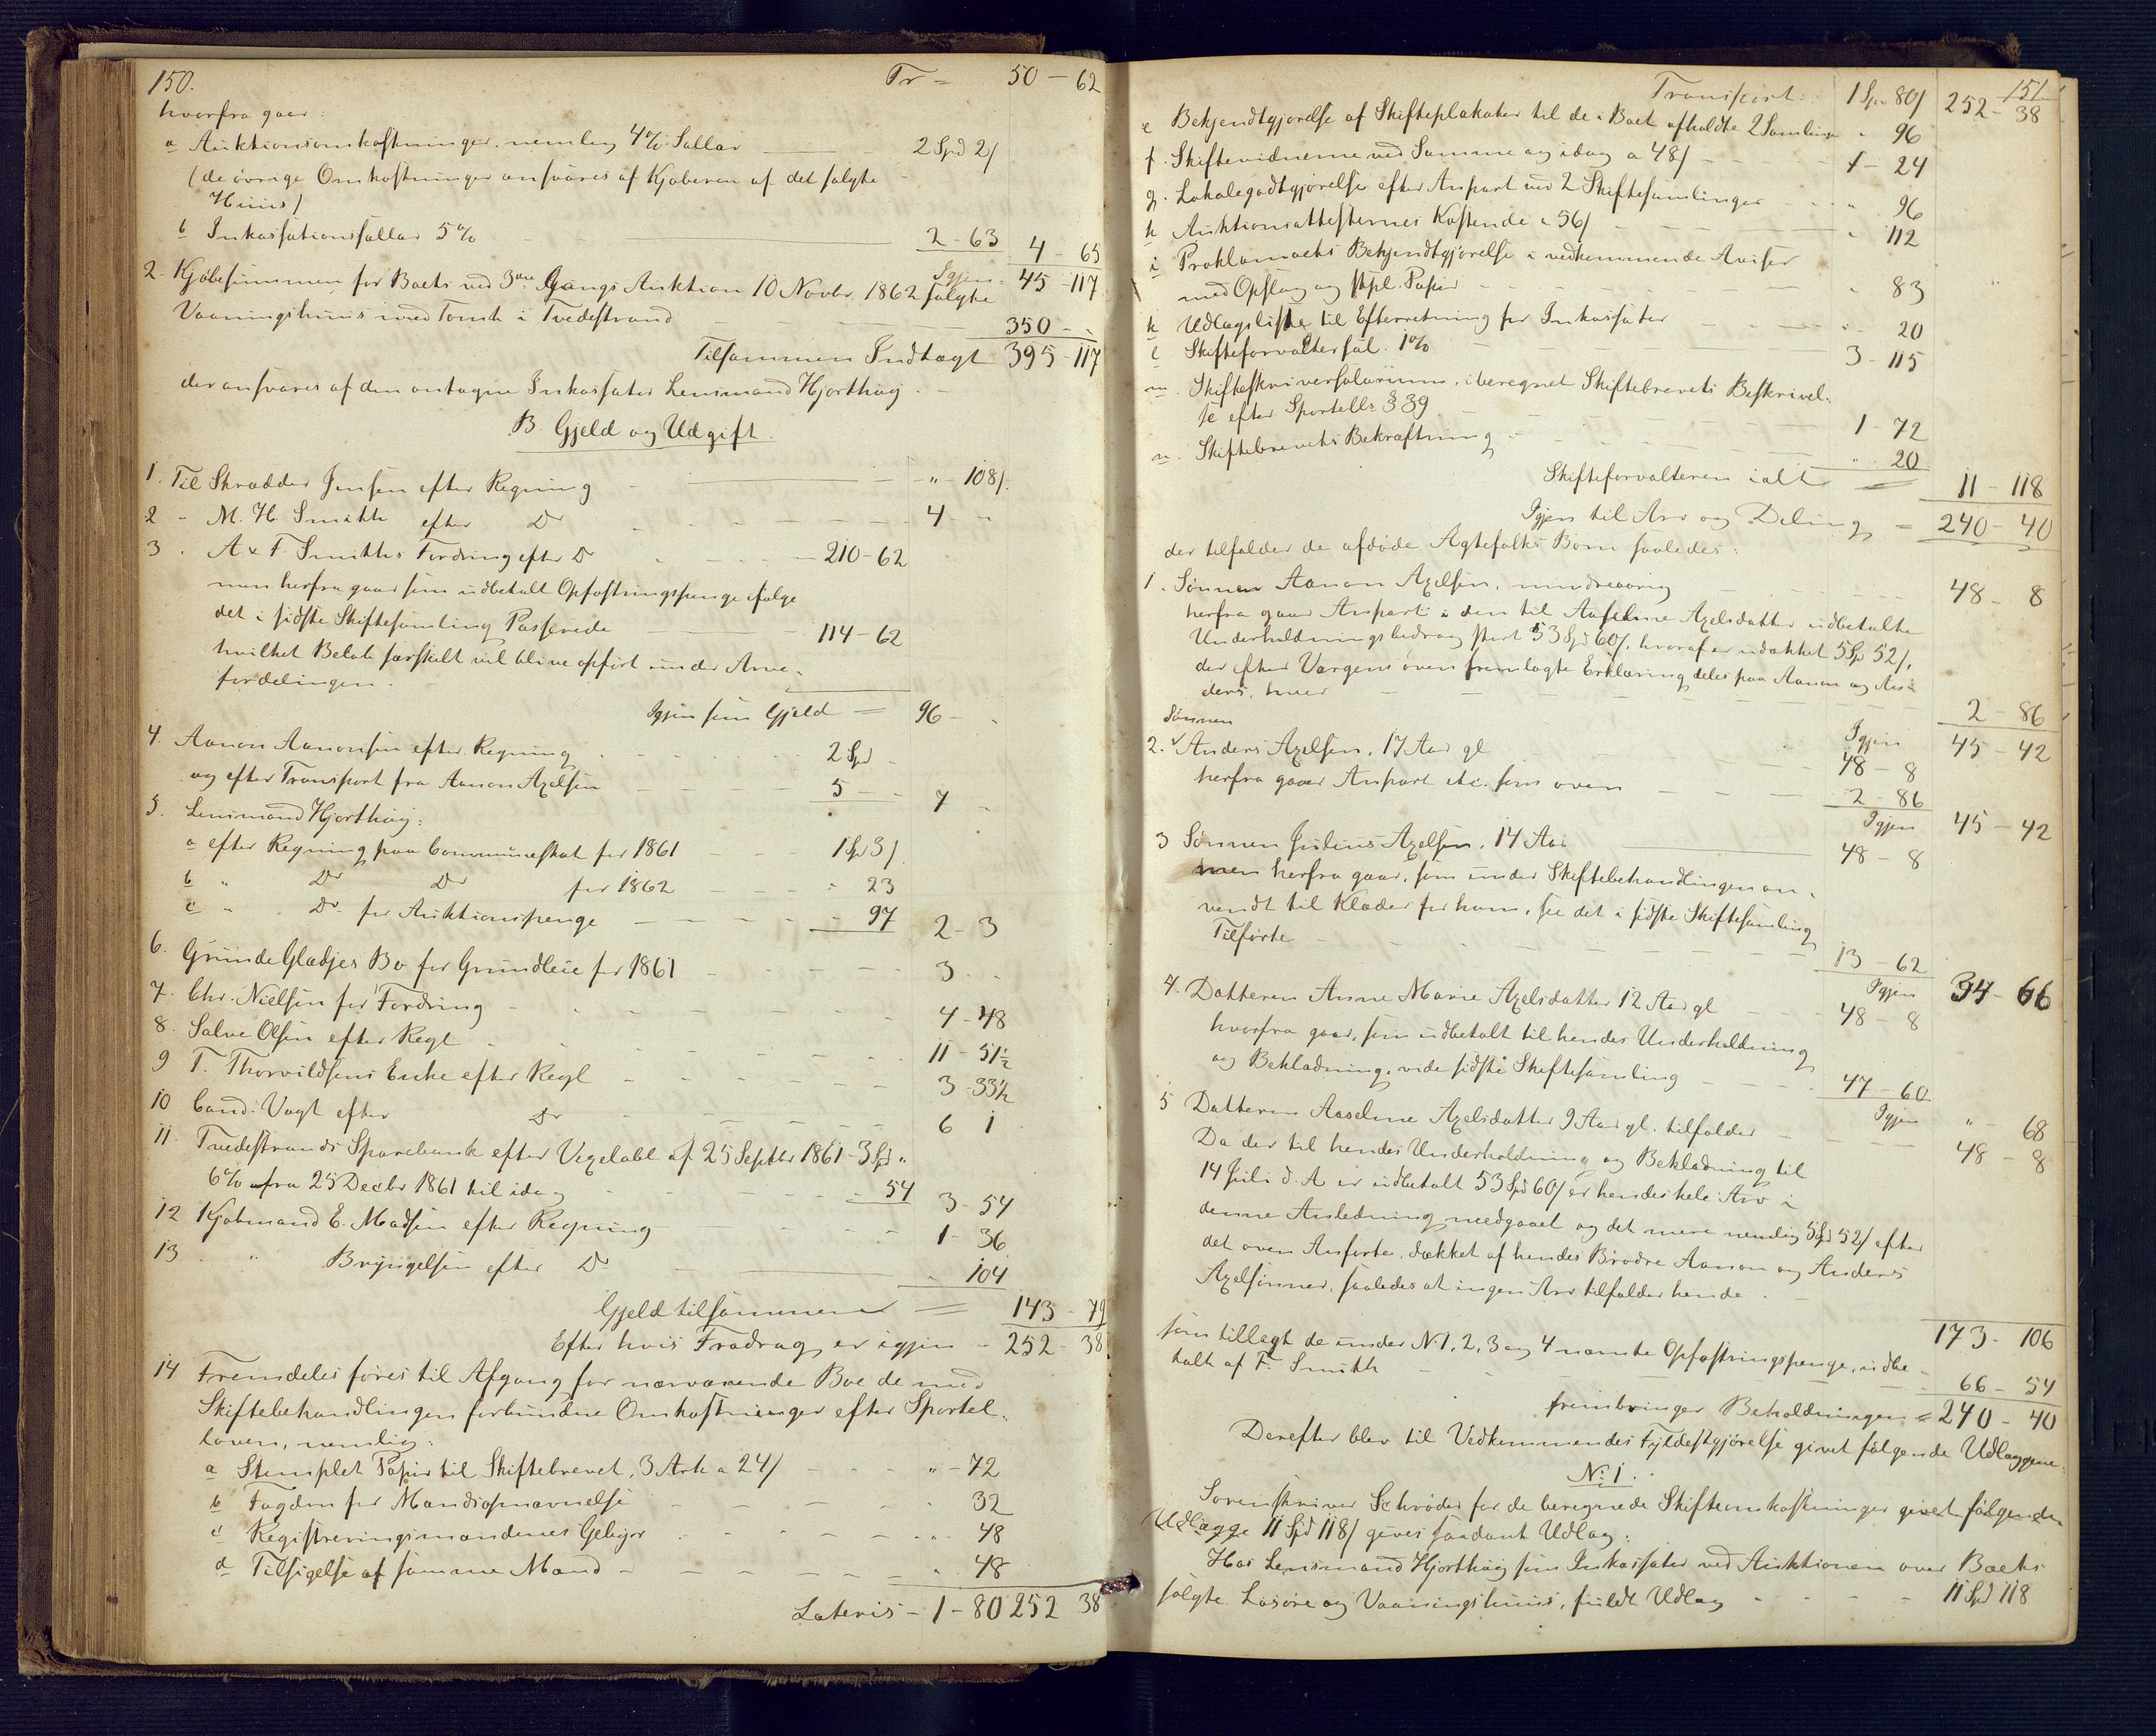 150.
Tr = 50 - 62
hvorfra gaar:
a Auktionsomkostninger nemlig 4% Sallar 2 Spd 2/
(de övrige Omkostninger ansvares af Kjøberen af det solgte
Huus)
b Inkassationssallar 5% 2 - 63 4 - 65
Igjen 45 - 117
2. Kjøbesummen for Boets ved 3die Gangs Auktion 10 Novbr. 1862 solgte
Vaaningshuus med Tomt i Tvedestrand 350 - "
Tilsammen Indtægt 395 - 117
der ansvares af den antagne Inkassator Lensmand Hjorthøy.
B. Gjeld og Udgift.
1. Til Skrædder Jensen efter Regning " - 108/
2 - M. H. Smith efter Do 4 - "
3. A & F. Smiths Fordring efter Do 210 - 62
men herfra gaar som udbetalt Opfostringspenge ifølge
det i sidste Skiftesamling Passerede 114 - 62
hvilket Beløb særskilt vil blive opført under Arve-
fordelingen.
Igjen som Gjeld = 96 - "
4. Aanon Aanonsen efter Regning 2 Spd -
og efter Transport fra Aanon Axelsen 5 - - 7 -
5. Lensmand Hjorthøy:
a efter Regning paa Communeskat for 1861 1 Spd 3/
b " Do Do for 1862 " 23
c " Do for Auktionspenge " 97 2 - 3
6. Gunde Gladjes Bo for Grundleie for 1861 3 . .
7. Chr. Nielsen for Fordring 4 - 48
8. Salve Olsen efter Regl 11 - 51½
9 T. Thorvildsens Enke efter Regl 3 - 33½
10 Cand. Vogt efter Do 6 1
11. Tvedestrands Sparebank efter Vexelobl af 25 Septbr 1861 - 3 Spd "
6% fra 25 Decbr 1861 til idag 54 3 - 54
12 Kjøbmand E. Madsen efter Regning 1 - 36
13 " Bryngelsen efter Do " 104
Gjeld tilsammen = 143 - 79
Efter hvis Fradrag er igjen - 252 - 38
14 Fremdeles føres til Afgang for nærværende Boe de med
Skiftebehandlingen forbundne Omkostninger efter Sportel-
loven, nemlig:
a Stemplet Papir til Skiftebrevet, 3 Ark a 24/ " - 72
b Fogden for Mandsopnævnelse " 32
c Registreringsmændenes Gebyr " 48
d Tilsigelse af samme Mænd " 48
Lateris - 1 - 80 252 38
151
Transport: 1 Spd 80/ 252 - 38
e Bekjendtgjørelse af Skifteplakater til de i Boet afholdte 2 Samlinger " 96
f. Skiftevidnerne ved Samme og idag a 48/ 1 - 24
g. Lokalegodtgjørelse efter Anpart ved 2 Skiftesamlinger " 96
h Auktionsattesternes Kostende a 56/ " 112
i Proklamaets Bekjendtgjørelse i vedkommende Aviser
med Opslag og stpl. Papir " 83
k Udlagsliste til Efterretning for Inkassator " 20
l Skifteforvaltersal. 1% 3 - 115
m. Skifteskriversalarium, iberegnet Skiftebrevets Beskrivel-
se efter Sportells § 39 1 - 72
n. Skiftebrevets Bekræftning " 20
Skifteforvalteren ialt 11 - 118
Igjen til Arv og Deling = 240 - 40
der tilfalder de afdøde Ægtefolks Børn saaledes:
1. Sønnen Aanon Axelsen, mindreaarig 48 - 8
herfra gaar Anpart i den til Aaseline Axelsdatter udbetalte
Underholdningsbidrag stort 53 Spd 60/, hvoraf er udækket 5 Spd 52/,
der efter Værgens oven fremlagte Erklæring deles paa Aanon og An-
ders, hver 2 - 86
Igjen 45 - 42
Sønnen
2. Anders Axelsen, 17 Aar gl 48 - 8
herfra gaaer Anpart etc. som oven 2 - 86
Igjen 45 - 42
3 Sønnen Julius Axelsen, 14 Aar 48 - 8
men herfra gaar, som under Skiftebehandlingen an-
vendt til Klæder for ham, see det i sidste Skiftesamling
Tilførte 13 - 62
Igjen 34 - 66
4. Datteren Anne Marie Axelsdatter 12 Aar gl 48 - 8
hvorfra gaar, som udbetalt til hendes Underholdning
og Beklædning, vide sidste Skiftesamling 47 - 60
Igjen " 68
5 Datteren Aaseline Axelsdatter 9 Aar gl. tilfalder 48 - 8
Da der til hendes Underholdning og Beklædning til
14 Juli d. A. er udbetalt 53 Spd 60/ er hendes hele Arv i
denne Anledning medgaaet og det mere nemlig 5 Spd 52/ efter
det oven Anførte, dækket af hendes Brødre Aanon og Anders
Axelsønner, saaledes at ingen Arv tilfalder hende.
173 - 106
som tillagt de under No 1, 2, 3 og 4 nævnte Opfostringspenge, udbe-
talt af F. Smith 66 - 54
frembringer Beholdningen = 240 - 40
Derefter blev til Vedkommendes Fyldestgjørelse givet følgende Udlæggene:
No 1.
Sorenskriver Schrøder for de beregnede Skifteomkostninger givet følgende
Udlægge 11 Spd 118/ gives saadant Udlæg:
Hos Lensmand Hjorthøy som Inkassator ved Auktionen over Boets
solgte Løsøre og Vaaningshuus, fuldt Udlæg 11 Spd 118